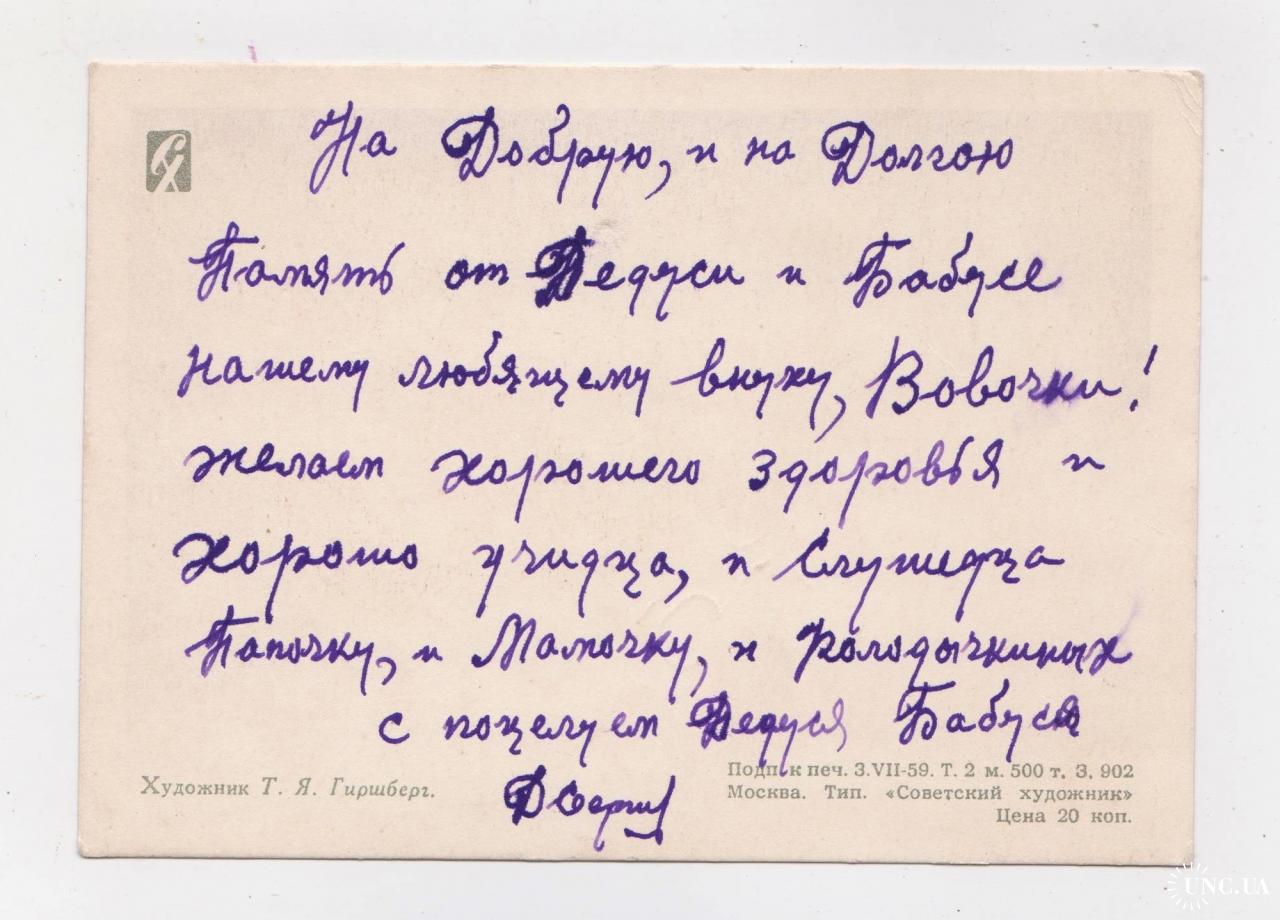 На Добрую, и на Долгою
Память от Дедуси и Бабусе
нашему любящему внуку, Вовочки!
желаем хорошего здоровья и
хорошо учидца, и Слушедца
Папочку, и Мамочку, и
с поцелуем Дедуся Бабуся
Художник Т. Я. Гиршберг.
Подп. к печ. 3.VII-59. Т. 2 м. 500 т. З. 902
Москва. Тип. «Советский художник»
Цена 20 коп.
UNC.UA